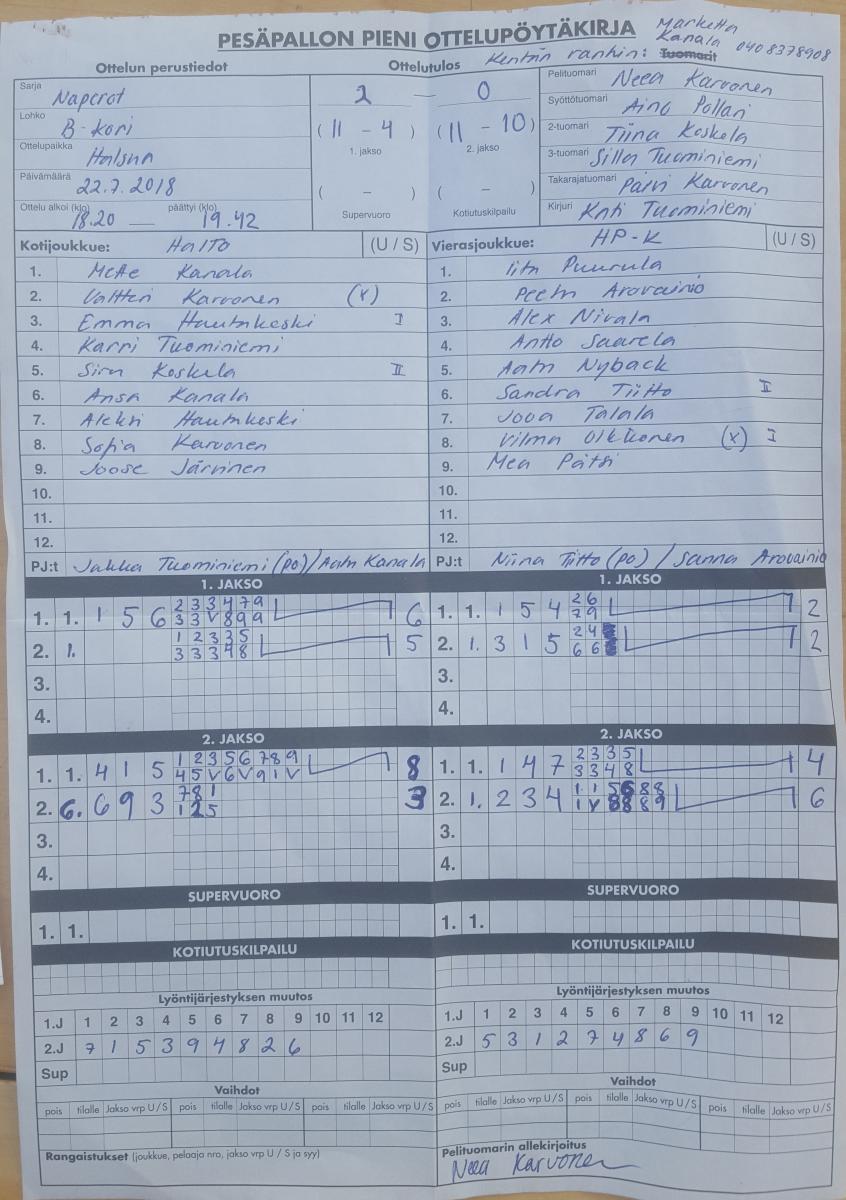 PESÄPALLON PIENI OTTELUPÖYTÄKIRJA
Marketta
Kanala 0408378908
Ottelun perustiedot
Ottelutulos
Kentän vanhin: Tuomarit
Sarja Naperot
Lohko B-kori
Ottelupaikka Halsua
Päivämäärä 22.7.2018
Ottelu alkoi (klo) 18.20 — päättyi (klo) 19.42
2 — 0
(11 - 4) (11 - 10)
1. jakso 2. jakso
( - ) ( - )
Supervuoro Kotiutuskilpailu
Pelituomari Neea Karvonen
Syöttötuomari Aino Pollari
2-tuomari Tiina Koskela
3-tuomari Silla Tuominiemi
Takarajatuomari Päivi Karvonen
Kirjuri Kati Tuominiemi
Kotijoukkue: HalTo (U / S)
1. Kanala
2. Valtteri Karvonen (x)
3. Emma Hautakoski I
4. Karri Tuominiemi
5. Siru Koskela II
6. Ansa Kanala
7. Aleksi Hautakoski
8. Sofia Karvonen
9. Joose Järvinen
10.
11.
12.
PJ:t Tuominiemi (po) / Aatu Kanala
Vierasjoukkue: HP-K (U / S)
1. Iita Puurula
2. Peetu Arovainio
3. Alex Nivala
4. Antto Saarela
5. Aatu Nyback
6. Sandra Tiitto II
7. Jova Talala
8. Vilma Olkkonen (x) I
9. Mea Pätsi
10.
11.
12.
PJ:t Niina Tiitto (po) / Sanna Arovainio
1. JAKSO
1. 1. 1 5 6 2 3 3 4 7 9 6
3 3 V 8 9 9
2. 1. 1 2 3 3 5 5
3 3 3 4 8
3.
4.
1. JAKSO
1. 1. 1 5 4 2 6 2
7 9
2. 1. 3 1 5 2 4 2
6 6
3.
4.
2. JAKSO
1. 1. 4 1 5 1 2 3 5 6 7 8 9 8
4 5 V 6 V 9 1 V
2. 6. 6 9 3 7 8 1 3
1 2 5
3.
4.
2. JAKSO
1. 1. 1 4 7 2 3 3 5 4
3 3 4 8
2. 1. 2 3 4 1 1 5 6 8 8 6
1 V 8 8 8 9
3.
4.
SUPERVUORO
1. 1.
SUPERVUORO
1. 1.
KOTIUTUSKILPAILU
KOTIUTUSKILPAILU
Lyöntijärjestyksen muutos
1.J 1 2 3 4 5 6 7 8 9 10 11 12
2.J 7 1 5 3 9 4 8 2 6
Sup
Lyöntijärjestyksen muutos
1.J 1 2 3 4 5 6 7 8 9 10 11 12
2.J 5 3 1 2 7 4 8 6 9
Sup
Vaihdot
pois tilalle Jakso vrp U / S pois tilalle Jakso vrp U / S pois tilalle Jakso vrp U / S
Vaihdot
pois tilalle Jakso vrp U / S pois tilalle Jakso vrp U / S pois tilalle Jakso vrp U / S
Rangaistukset (joukkue, pelaaja nro, jakso vrp U / S ja syy)
Pelituomarin allekirjoitus
Neea Karvonen